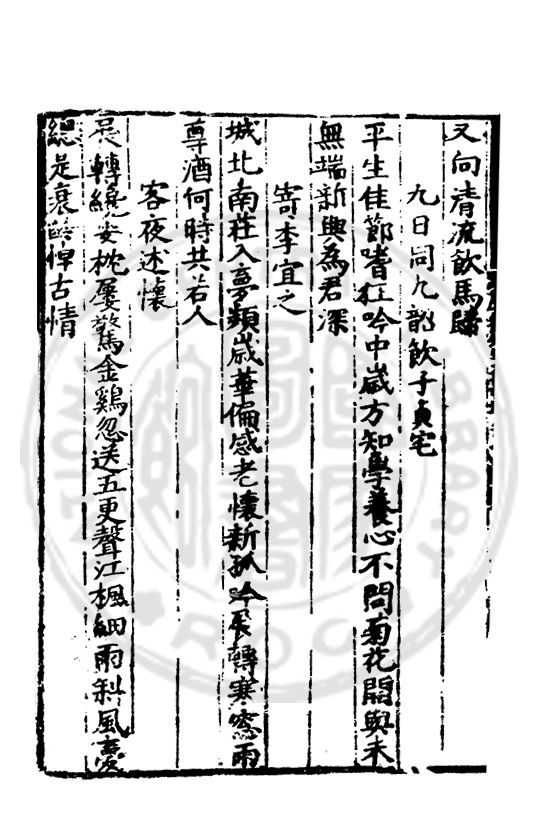 又向清流飲馬歸
九日同九韶飲子貞宅
平生佳節嗜狂吟中歲方知學養心不問菊花開與未
無端新興為君深
寄李宜之
城北南莊入夢頻歲華偏感老懷新孤吟展轉寒窓雨
尊酒何時共若人
客夜述懷
展轉纔安枕屢驚金鷄忽送五更聲江楓細雨斜風裏
總是衰齡悍古情